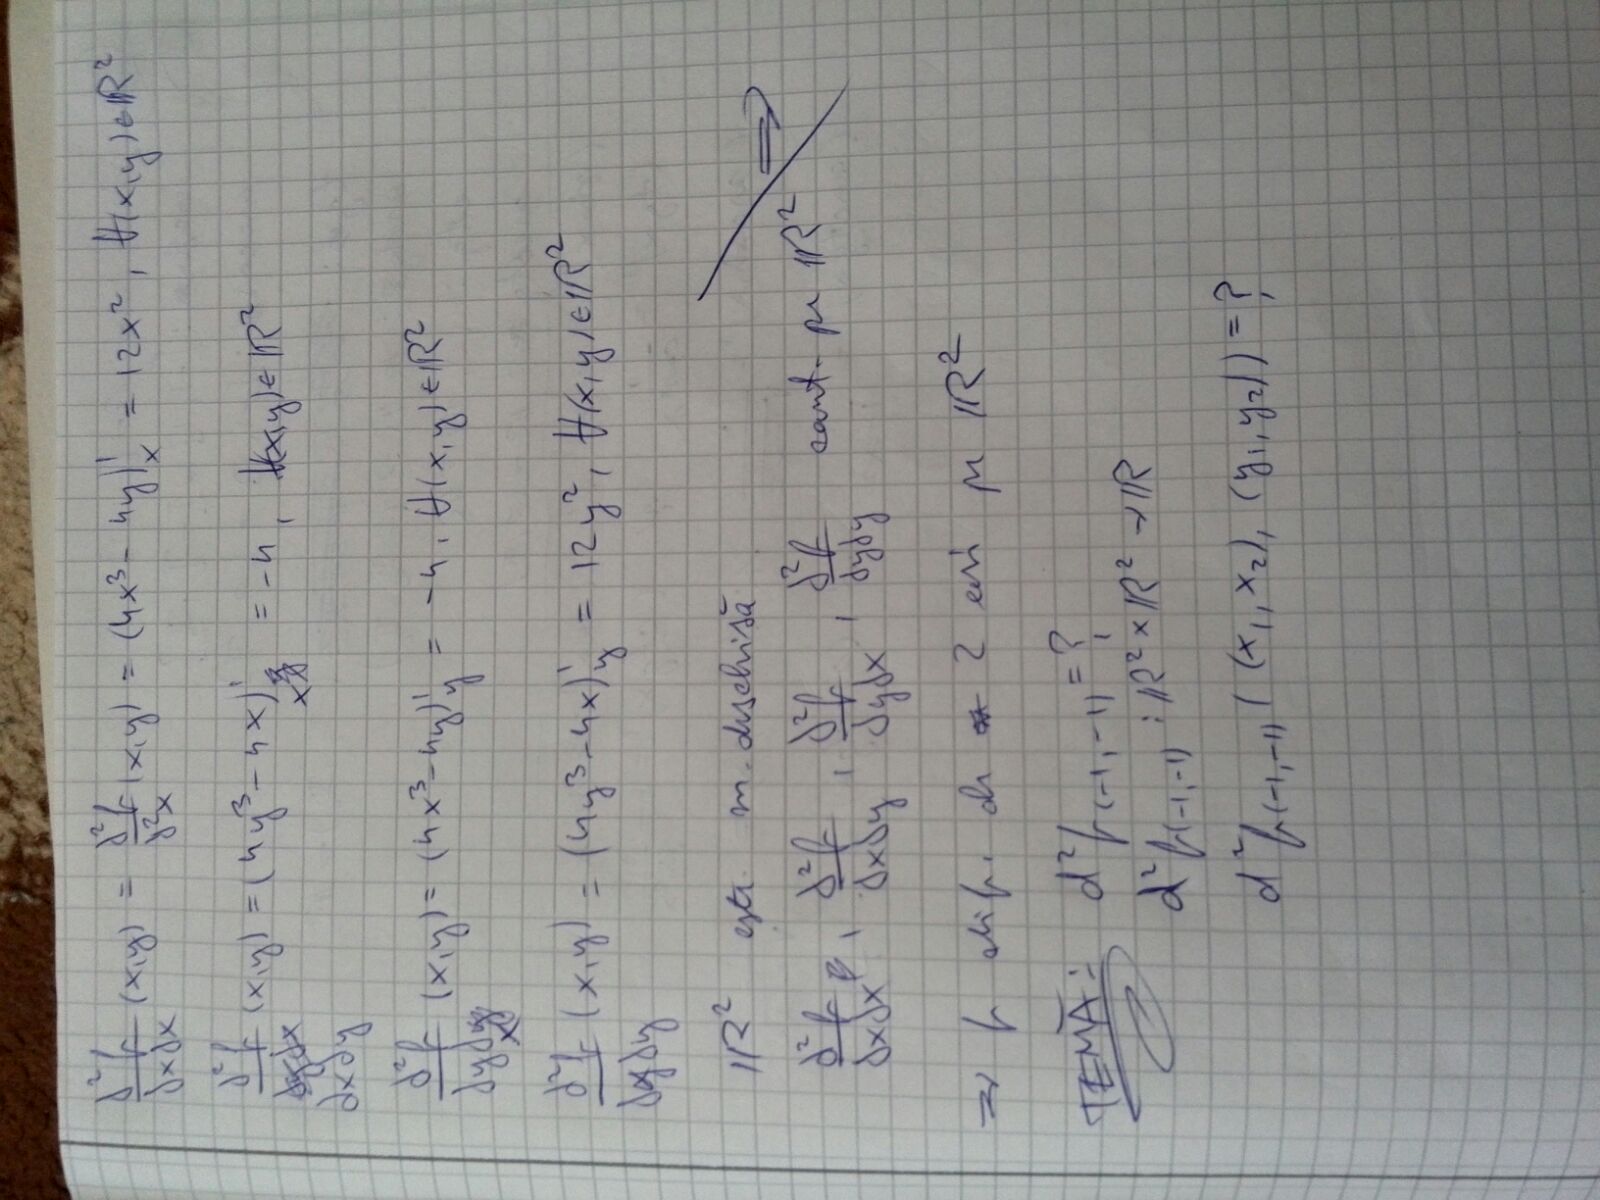 ∂²f/∂x∂x (x,y) = ∂²f/∂²x (x,y) = (4x³-4y)'ₓ = 12x², ∀(x,y)∈ℝ²
∂²f/∂x∂y (x,y) = (4y³-4x)'ₓ = -4, ∀(x,y)∈ℝ²
∂²f/∂y∂x (x,y) = (4x³-4y)'y = -4, ∀(x,y)∈ℝ²
∂²f/∂y∂y (x,y) = (4y³-4x)'y = 12y², ∀(x,y)∈ℝ²
ℝ² este m. deschisă
∂²f/∂x∂x, ∂²f/∂x∂y, ∂²f/∂y∂x, ∂²f/∂y∂y cont. pe ℝ² ⇒
⇒ f dif. de 2 ori pe ℝ²
TEMĂ: d²f(-1,-1) = ?
d²f(-1,-1) : ℝ²×ℝ² → ℝ
d²f(-1,-1) ((x₁,x₂), (y₁,y₂)) = ?